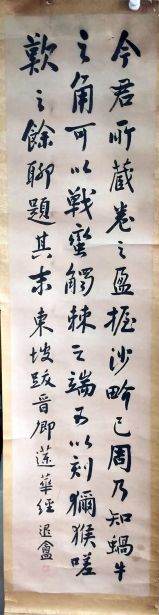 今君所藏卷之盈握沙畍已周乃知蝸牛
之角可以戰蠻觸棘之端可以刻獼猴嗟
歎之餘聊題其末東坡跋晉卿蓮華經 退盦